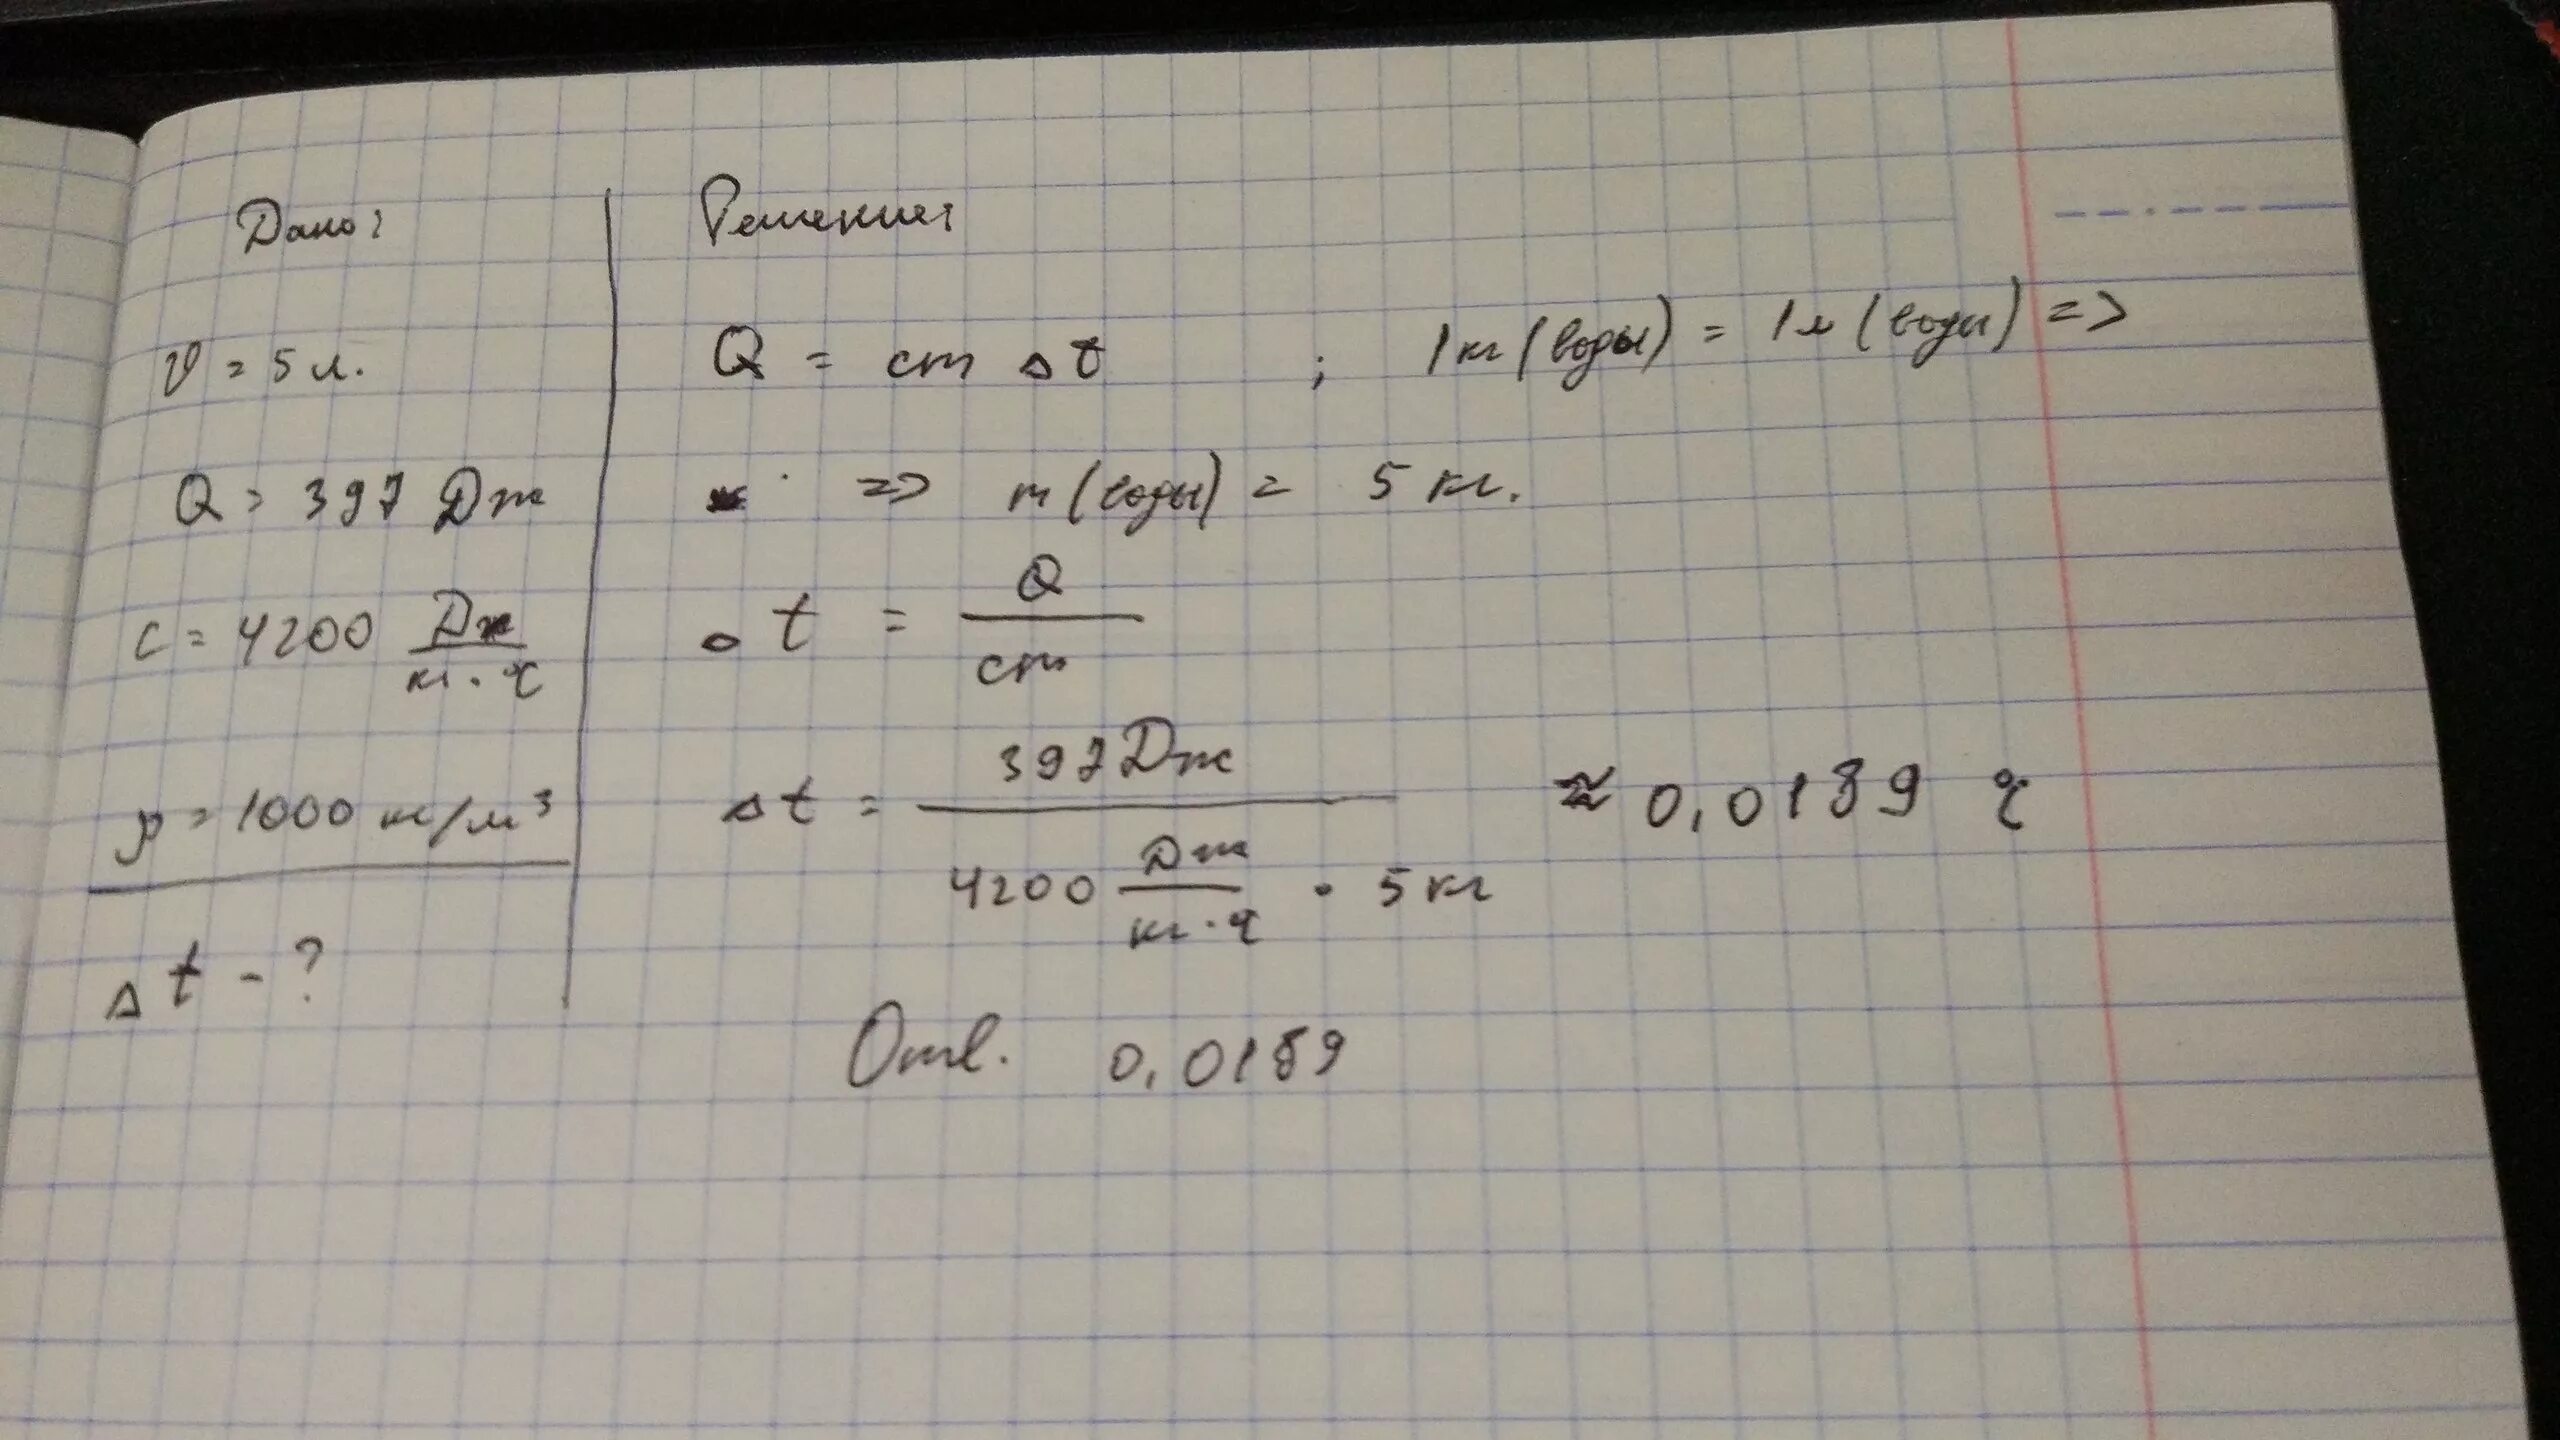 Дано:
V = 5 л.
Q = 397 Дж
c = 4200 Дж/кг·°C
ρ = 1000 кг/м³
Δt - ?
Решение:
Q = cmΔt ; 1кг (воды) = 1л (воды) =>
=> m (воды) = 5 кг.
Δt = Q/cm
Δt = 397Дж/4200 Дж/кг·°C · 5кг ≈ 0,0189 °C
Отв. 0,0189